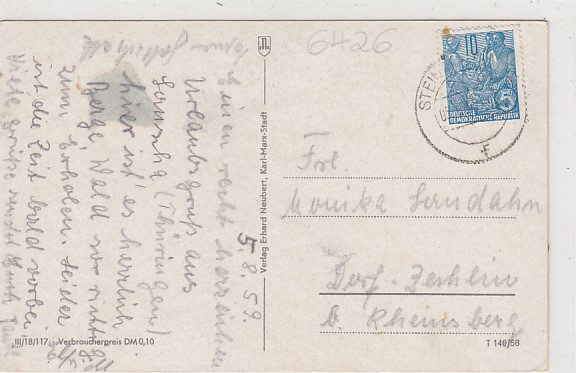 6426
5.8.59.
Einen recht herzlichen
Urlaubsgruß aus
(Thüringen)
hier ist es herrlich
Berge Wald so richtig
zum Erholen. Leider
ist die Zeit bald vorbei
Viele Grüße sendet Euch
Verlag Erhard Neubert, Karl-Marx-Stadt
III/18/117 Verbraucherpreis DM 0,10
10
DEUTSCHE
DEMOKRATISCHE REPUBLIK
STEI
f
Frl.
Monika Sandahn
Dorf-Zechlin
b. Rheinsberg
T 140/58